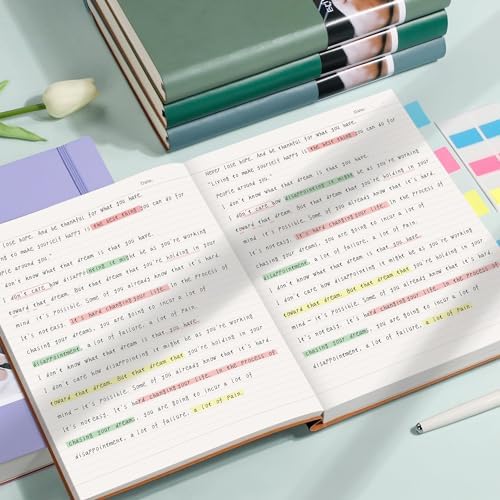 Date:
lose hope. And be thankful for what you have.
ing to make yourself happy is the best thing you can do for
people around you."
don't know what that dream is that you have.
don't care how disappointing it might be as you're working
toward that dream. But that dream that you're holding in your
mind it's possible. Some of you already know that it's hard.
It's not easy. It's hard changing your life. In the process of
chasing your dreams, you are going to incur a lot of
disappointment, a lot of failure, a lot of pain.
I don't know what that dream is that you have.
I don't care how disappointing it might be as you're working
toward that dream. But that dream that you're holding in your
mind — it's possible. Some of you already know that it's hard
It's not easy. It's hard changing your life. In the process of
chasing your dreams, you are going to incur a lot of
disappointment, a lot of failure, a lot of pain.
Date:
Never lose hope. And be thankful for what you have.
"Living to make yourself happy is the best thing you can do for
people around you."
I don't know what that dream is that you have.
I don't care how disappointing it might be as you're working
toward that dream. But that dream that you're holding in your
mind it's possible. Some of you already know that it's hard
It's not easy. It's hard changing your life. In the process of
chasing your dreams, you are going to incur a lot of
disappointment, a lot of failure, a lot of pain.
I don't know what that dream is that you have.
I don't care how disappointing it might be as you're working
toward that dream. But that dream that you're holding in your
mind — it's possible. Some of you already know that it's hard
It's not easy. It's hard changing your life. In the process of
chasing your dreams, you are going to incur a lot of
disappointment, a lot of failure, a lot of pain.